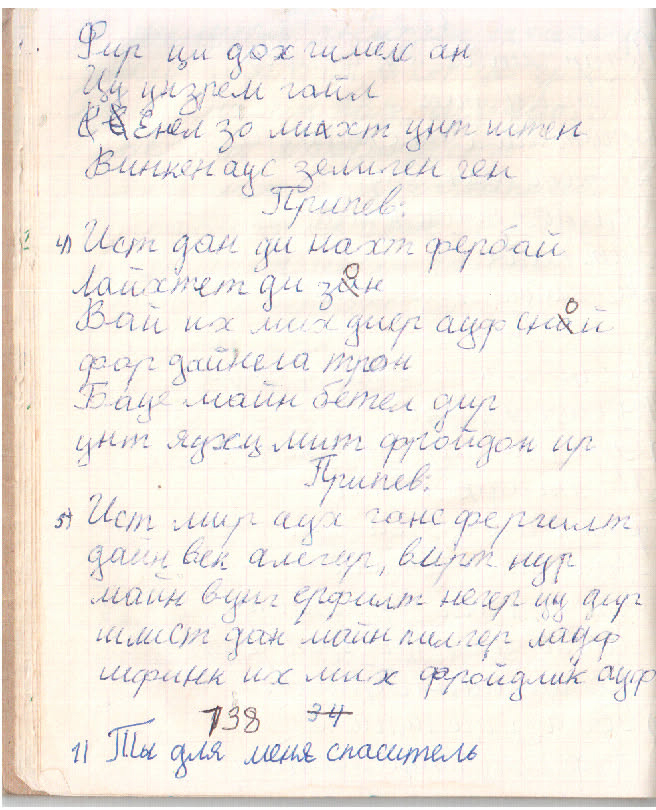 Фир ци дох гимел ан
Цу унзрем гайл
Енел зо михт унт штен
Винкен аус зелиген ген
Припев:
4) Ист дан ди нахт фербай
Лайхтет ди зон
Вай их мих диер ауф сной
фор дайнела трон
Бауе майн бетел дир
унт яухц мит фройдон ир
Припев:
5) Ист мир аух ганс фергилт
дайн век алегир, вирт нур
майн вунг ерфилт негер цу дир
шлист дан майн пилгер лауф
шфинк их мих фройдлик ауф
138 34
1) Ты для меня спаситель